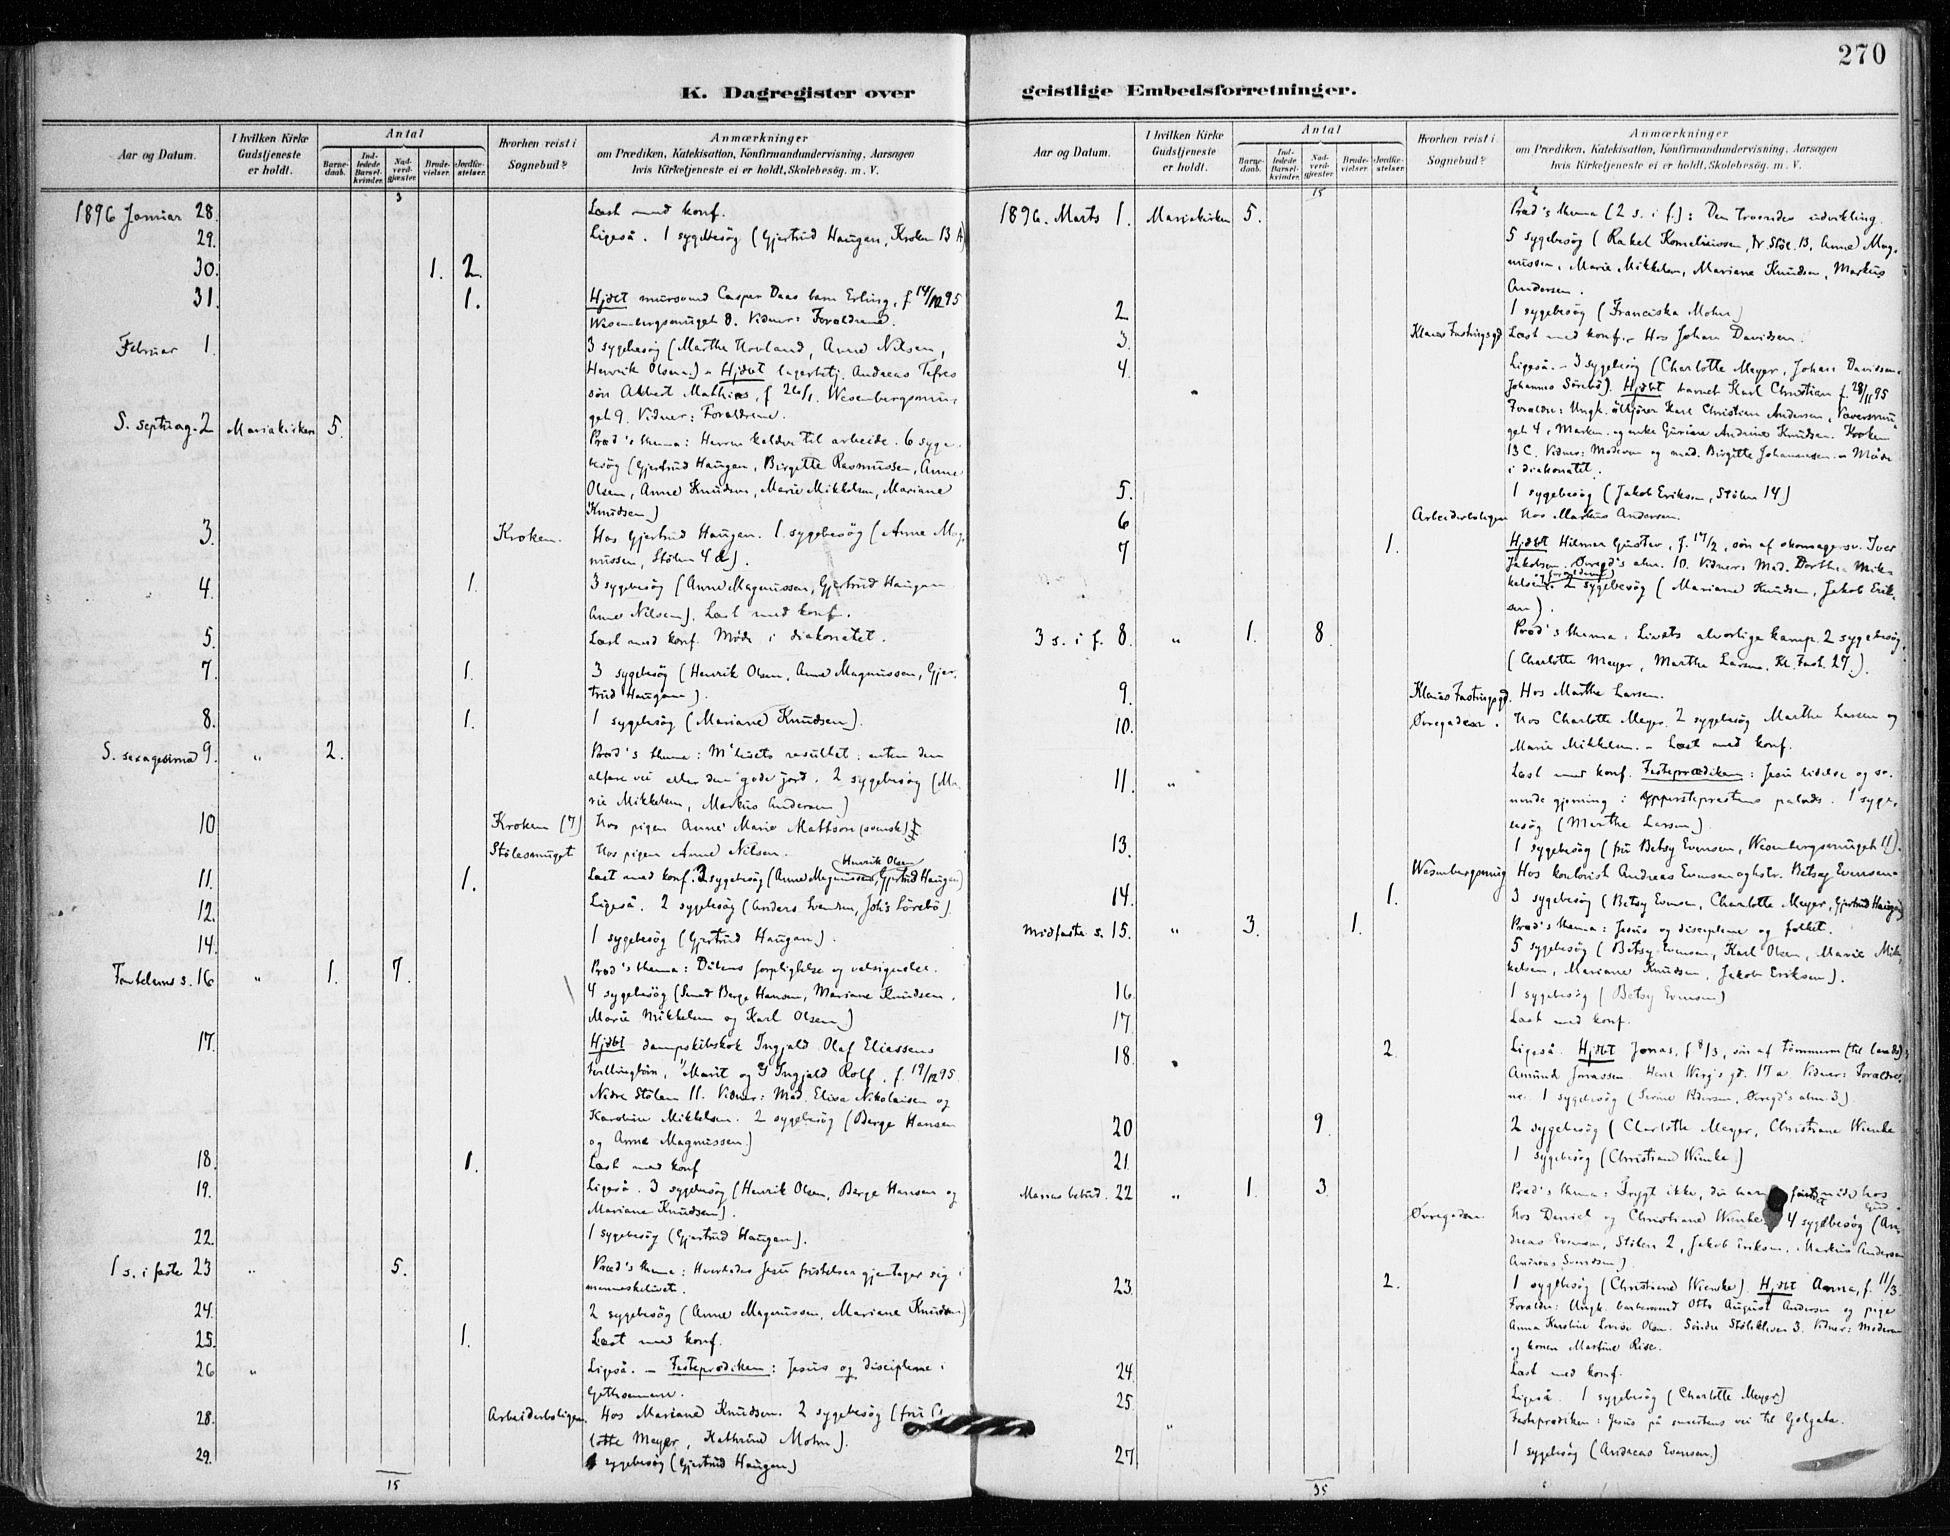 270
K. Dagregister over
geistlige Embedsforretninger.
Aar og Datum.
I hvilken Kirke Gudstjeneste er holdt.
Antal
Barne-daab.
Ind-ledede Barsel-kvinder.
Nad-verd-gjæster.
Brude-vielser.
Jordfæ-stelser.
Hvorhen reist i Sognebud?
Anmærkninger
om Prædiken, Katekisation, Konfirmandundervisning, Aarsagen
hvis Kirketjeneste ei er holdt, Skolebesøg. m. V.
3
1896 Januar 28. Læst med konf.
29. Ligeså. 1 sygebesøg (Gjertrud Haugen, Kroken 13 A)
30. 1. 2.
31. 1. Hjdøbt murersvend Casper Daas barn Erling, f. 14/12 95
Wesenbergsmuget 8. Vidner: Forældrene.
Februar 1. 3 sygebesøg (Marthe Hovland, Anne Nilsen,
Henrik Olsen.) - Hjdøbt lagerbetj. Andreas
søn Albert Mathias, f. 26/1. Wesenbergsmu-
get 9. Vidner: Forældrene.
S. septuag. 2 Mariakirken 5. Præd's thema: Herren kalder til arbeide. 6 syge-
besøg (Gjertrud Haugen, Birgitte Rasmussen, Anne
Olsen, Anne Knudsen, Marie Mikkelsen, Mariane
Knudsen)
3. Kroken. Hos Gjertrud Haugen. 1 sygebesøg (Anne Mag-
nussen, Stølen 4 d).
4. 1. 3 sygebesøg (Anne Magnussen, Gjertrud Haugen
Anne Nilsen). Læst med konf.
5. Læst med konf. Møde i diakonatet.
7. 1. 3 sygebesøg (Henrik Olsen, Anne Magnussen, Gjer-
trud Haugen).
8. 1. 1 sygebesøg (Mariane Knudsen).
S. sexagesima 9. " 2. Præd's thema: M livets resultet: enten den
alfare vei eller den gode jord. 2 sygebesøg (Ma-
rie Mikkelsen, Markus Andersen)
10 Kroken (7) Hos pigen Anne Marie Mattson (svensk)
Stølesmuget Hos pigen Anne Nilsen.
11. 1. Læst med konf. 3 sygebesøg (Anne Magnussen, Henrik Olsen, Gjertrud Haugen)
12. Ligeså. 2 sygebesøg (Anders Svendsen, Joh's Sørebø)
14. 1 sygebesøg (Gjertrud Haugen).
Fastelavns s. 16 " 1. 7. Præd's thema: Dåbens forpligtelse og velsignelse.
4 sygebesøg (Smed Berge Hansen, Mariane Knudsen,
Marie Mikkelsen og Karl Olsen)
17. Hjdbt dampskibskok Ingjald Olaf Eliassens
tvillingbørn, Marit og Ingjald Rolf, f. 19/12 95
Nidre Stølen 11. Vidner: Mad. Elisa Nikolaisen og
Karoline Mikkelsen. 2 sygebesøg (Berge Hansen
og Anne Magnussen)
18. 1. Læst med konf
19. Ligeså. 3 sygebesøg (Henrik Olsen, Berge Hansen og
Mariane Knudsen).
22. 1 sygebesøg (Gjertrud Haugen).
1 s. i faste 23 " 5. Præd's thema: Hvorledes Jesu fristelser gjentager sig i
menneskelivet.
24. 2 sygebesøg (Anne Magnussen, Mariane Knudsen)
25. 1. Læst med konf.
26 " Ligeså. - Fasteprædiken: Jesus og disciplene i
Gethsemane.
28. Arbeiderboligen. Hos Mariane Knudsen. 2 sygebesøg (fru
lotte Meyer, Kathrine Mohn).
29. 1 sygebesøg (Gjertrud Haugen)
15
Aar og Datum.
I hvilken Kirke Gudstjeneste er holdt.
Antal
Barne-daab.
Ind-ledede Barsel-kvinder.
Nad-verd-gjæster.
Brude-vielser.
Jordfæ-stelser.
Hvorhen reist i Sognebud?
Anmærkninger
om Prædiken, Katekisation, Konfirmandundervisning, Aarsagen
hvis Kirketjeneste ei er holdt, Skolebesøg. m. V.
15
1896. Marts 1. Mariakirken 5. Præd's thema (2 s. i f.): Den troendes udvikling.
5 sygebesøg (Rakel Korneliussen, Nr. Støl. 13, Anne Mag-
nussen, Marie Mikkelsen, Mariane Knudsen, Markus
Andersen.
2 1 sygebesøg (Franciska Mohn)
3. Klaus Fastings gd. Læst med konf. Hos Johan Davidsen.
4. Ligeså. - 3 sygebesøg (Charlotte Meyer, Johan Davidsen
Johannes Sørebø). Hjdbt barnet Karl Christian f. 28/11 95
Forældre: Ungk. Karl Christian Andersen,
get 4, Marken. og enke Guriane Andrine Knudsen. Kroken
13 C. Vidner: Moderen og mad. Birgitte Johannesen. - Møde
i diakonatet.
5. 1 sygebesøg (Jakob Eriksen, Stølen 14)
6 Arbeiderboligen Hos Markus Andersen.
7 1. Hjdbt Hilmar Gustav, f. 17/2, søn af Iver
Jakobsen. Øvregd's alm. 10. Vidner: Mad. Dorthea Mik-
kelsen. 2 sygebesøg (Mariane Knudsen, Jakob Erik-
sen).
3 s. i f. 8. " 1. 8. Præd's thema: Livets alvorlige kamp. 2 sygebesøg
(Charlotte Meyer, Marthe Larsen. Kl. Fast. 27.).
9. Klaus Fastings gd. Hos Marthe Larsen.
10. Øvregaden. Hos Charlotte Meyer. 2 sygebesøg Marthe Larsen og
Marie Mikkelsen. - Læst med konf.
11. " Læst med konf. Fasteprædiken: Jesu lidelse og so-
nende gjerning i Ypperstepræstens palads. 1 syge-
besøg (Marthe Larsen).
13. 1 sygebesøg (fru Betsy Evensen, Wesenbergsmuget 11).
Wesenbergsmug Hos kontorist Andreas Evensen og hstr. Betsy Evensen.
14. 1. 3 sygebesøg (Betsy Evensen, Charlotte Meyer, Gjertrud Haugen)
Midfaste s. 15. " 3. 1. Præd's thema: Jesus og disciplene og folket.
5 sygebesøg (Betsy Evensen, Karl Olsen, Marie Mik-
kelsen, Mariane Knudsen, Jakob Eriksen).
16 1 sygebesøg (Betsy Evensen)
17 Læst med konf.
18. " 2. Ligeså. Hjdbt Jonas, f. 8/3, søn af tømmerm.
Amund Jonassen. gd. 17 a Vidner: Forældre-
ne. 1 sygebesøg (Serine Pedersen, Øvregd's alm. 3)
20 9. 2 sygebesøg (Charlotte Meyer, Christiane Wienke
21. 1 sygebesøg (Christiane Wienke)
Marias bebud. 22 " 1. 3. Præd's thema: Frygt ikke, du har fundet nåde hos
Gud.
Øvregaden Hos Daniel og Christiane Wienke. 4 sygebesøg (An-
dreas Evensen, Stølen 2, Jakob Eriksen, Markus Andersen
Andreas Svendsen)
23. 2. 1 sygebesøg (Christiane Wienke). Hjdbt Anna, f. 11/3.
Forældre: Ungk. Otto August Andersen og pige
Anna Karoline Lovise Olsen. Søndre Stølekleven 3. Vidner: Moderen
og konen Martine Rise.
24 Læst med konf.
25 Ligeså. 1 sygebesøg (Charlotte Meyer)
" Fasteprædiken: Jesus på smertens vei til Golgata.
27 1 sygebesøg (Andreas Evensen)
35